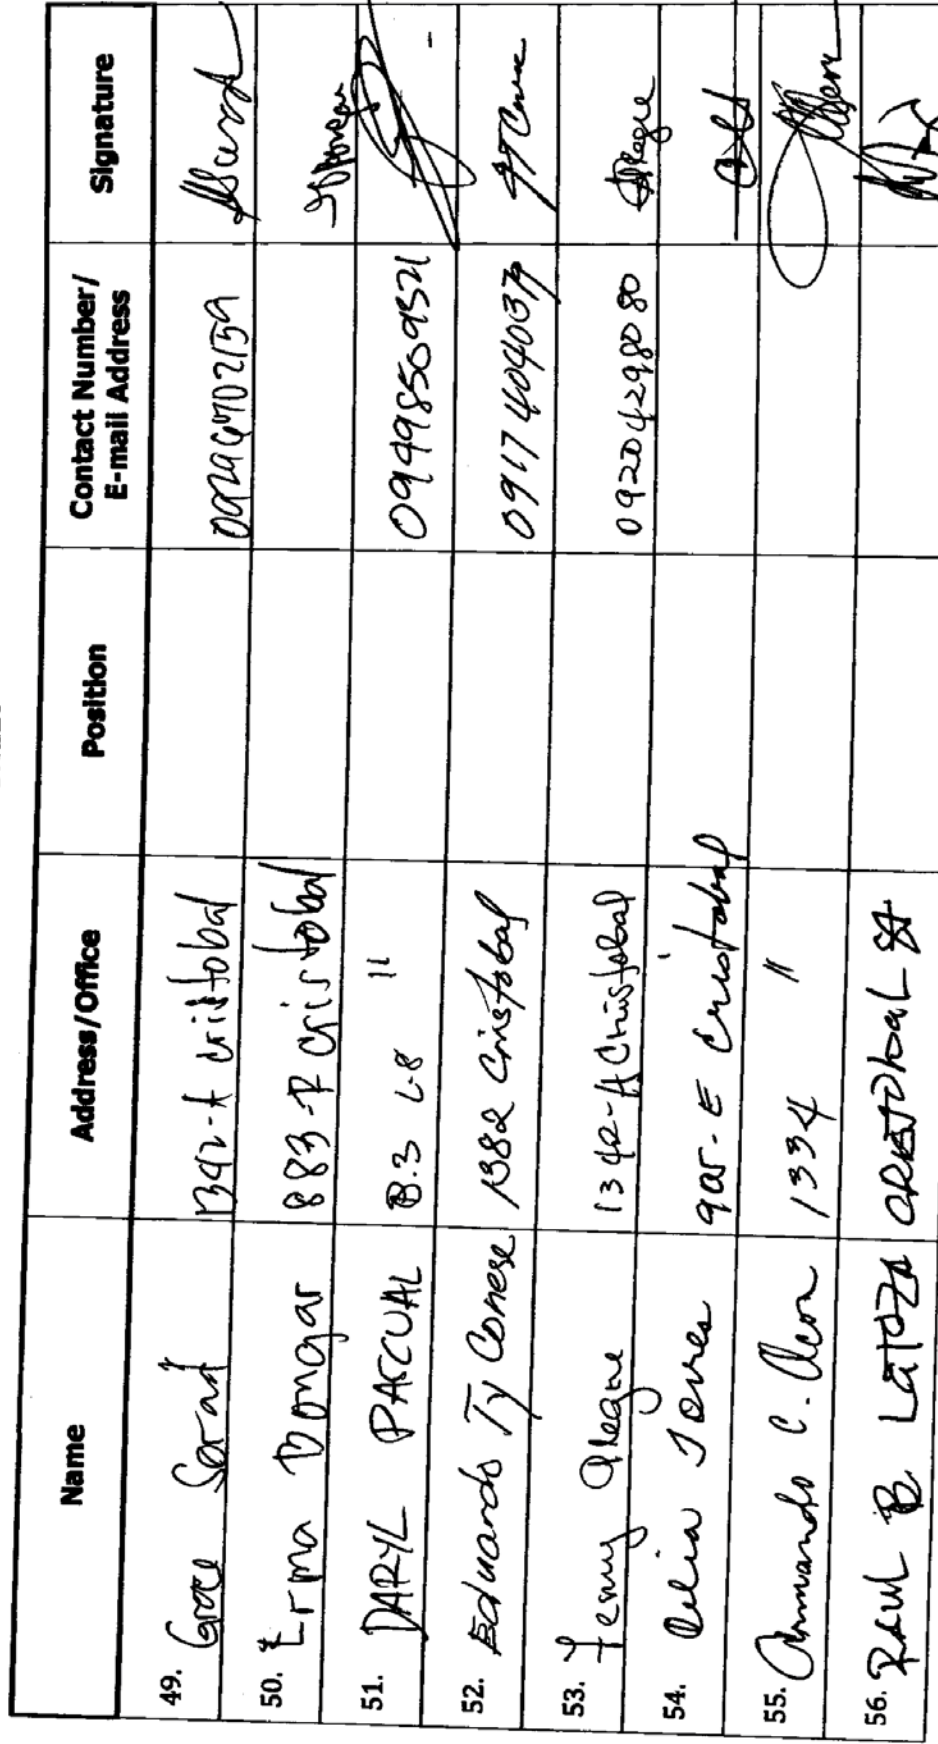 Name Address/Office Position Contact Number/ E-mail Address Signature
49. Grace 1342-A Cristobal
50. Erma Bongar 883-P Cristobal
51. DARYL PASCUAL B.3 L-8 " 09498569521
52. Eduardo Ty Conese 1382 Cristobal 09174040379
53. 1342-A Cristobal 09204298080
54. Delia Torres 905-E Cristobal
55. Armando C. Alcon 1334 "
56. Raul B Latoza CRISTOBAL St